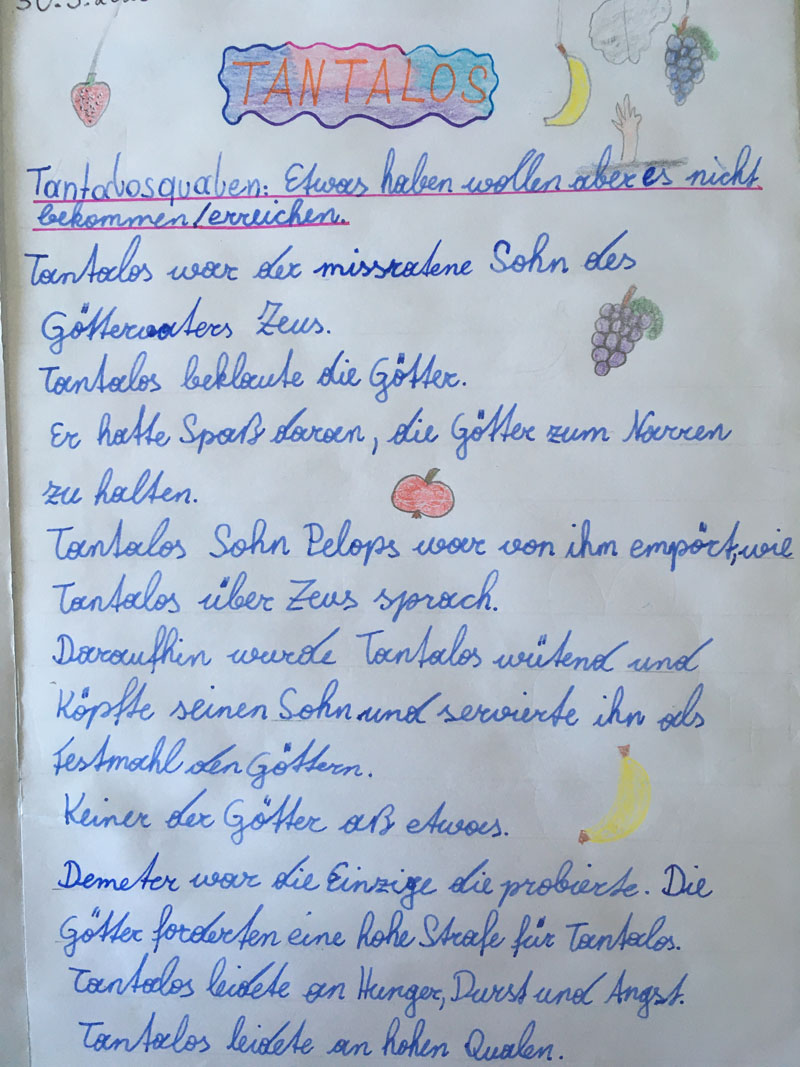 TANTALOS
Tantalosqualen: Etwas haben wollen aber es nicht
bekommen/erreichen.
Tantalos war der missratene Sohn des
Göttervaters Zeus.
Tantalos beklaute die Götter.
Er hatte Spaß daran, die Götter zum Narren
zu halten.
Tantalos Sohn Pelops war von ihm empört, wie
Tantalos über Zeus sprach.
Daraufhin wurde Tantalos wütend und
Köpfte seinen Sohn und servierte ihn als
Festmahl den Göttern.
Keiner der Götter aß etwas.
Demeter war die Einzige die probierte. Die
Götter forderten eine hohe Strafe für Tantalos.
Tantalos leidete an Hunger, Durst und Angst.
Tantalos leidete an hohen Qualen.